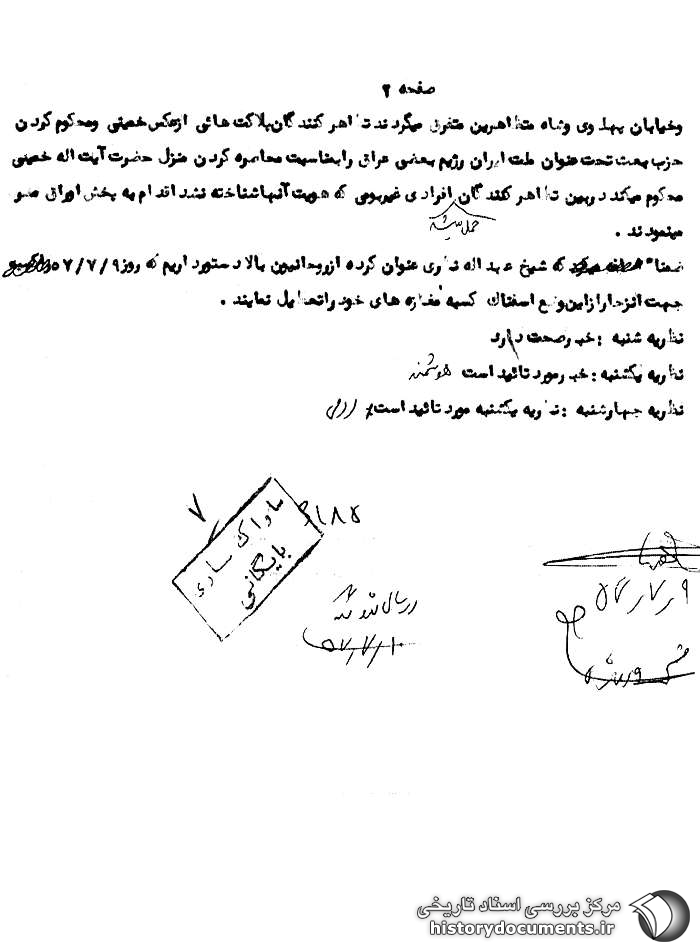 صفحه ۲
وخیابان پهلوی وشاه متظاهرین متفرق میگردند تظاهر کنندگان پلاکت هائی ازعکس خمینی ومحکوم کردن
حزب بعث تحت عنوان ملت ایران رژیم بعثی عراق رابمناسبت محاصره کردن منزل حضرت آیت اله خمینی
محکوم میکند دربین تظاهر کنندگان افرادی غیربومی که هویت آنها شناخته نشد اقدام به پخش اوراق مضر
مینمودند .
ضمناً که شیخ عبداله نظری عنوان کرده ازروحانیون بالا دستور داریم که روز ۵۷/۷/۹
جهت انزجار ازاین وضع اسفناک کسبه مغازه های خود راتعطیل نمایند .
نظریه شنبه : خبر صحت دارد
نظریه یکشنبه : خبر مورد تائید است هوشمند
نظریه چهارشنبه : نظریه یکشنبه مورد تائید است
۷
ساواک ساری
بایگانی
۵۷/۷/۹
۵۷/۷/۱۰
مرکز بررسی اسناد تاریخی
historydocuments.ir